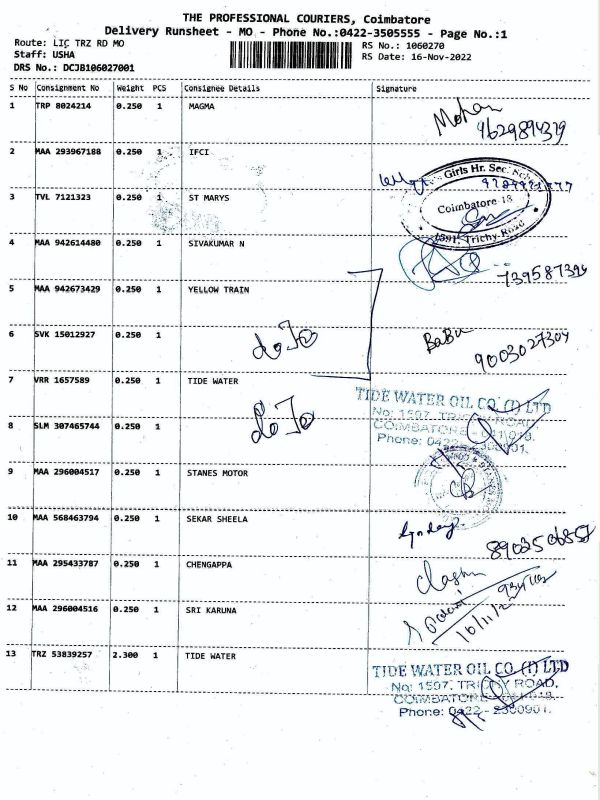 THE PROFESSIONAL COURIERS, Coimbatore
Delivery Runsheet - MO - Phone No.:0422-3505555 - Page No.:1
Route: LIC TRZ RD MO
RS No.: 1060270
Staff: USHA
RS Date: 16-Nov-2022
DRS No.: DCJB106027001
S No Consignment No Weight PCS Consignee Details Signature
1 TRP 8024214 0.250 1 MAGMA
Mohan
9629894379
2 MAA 293967188 0.250 1 IFCI
Girls Hr. Sec.
3 TVL 7121323 0.250 1 ST MARYS
Coimbatore-18
1391, Trichy Road
4 MAA 942614480 0.250 1 SIVAKUMAR N
739587394
5 MAA 942673429 0.250 1 YELLOW TRAIN
6 SVK 15012927 0.250 1
BaBu
9003027304
7 VRR 1657589 0.250 1 TIDE WATER
TIDE WATER OIL CO. (I) LTD
No: 1597, TRICHY ROAD,
8 SLM 307465744 0.250 1
COIMBATORE - 641 018.
Phone: 0422 - 2300901.
9 MAA 296004517 0.250 1 STANES MOTOR
10 MAA 568463794 0.250 1 SEKAR SHEELA
11 MAA 295433787 0.250 1 CHENGAPPA
12 MAA 296004516 0.250 1 SRI KARUNA
13 TRZ 53839257 2.300 1 TIDE WATER
TIDE WATER OIL CO. (I) LTD
No: 1597, TRICHY ROAD,
COIMBATORE
Phone: 0422 - 2300901.